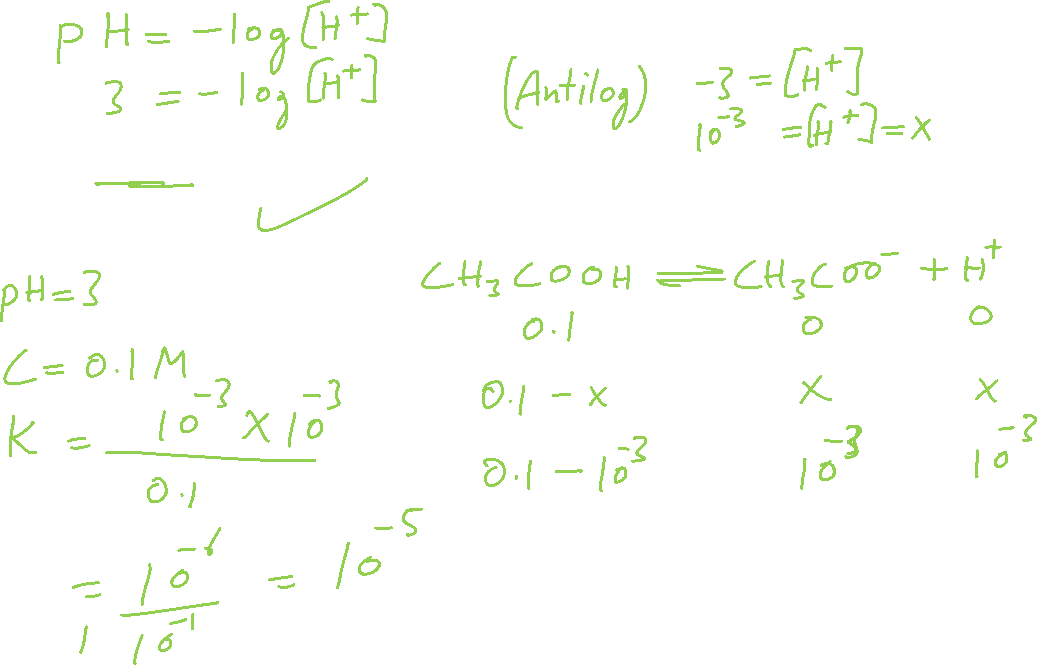 pH = -log[H⁺]
3 = -log[H⁺]
(Antilog) -3 = [H⁺]
10⁻³ = [H⁺] = x
pH = 3
C = 0.1 M
K = 10⁻³ x 10⁻³ / 0.1
= 10⁻⁶ / 10⁻¹ = 10⁻⁵
CH₃COOH ⇌ CH₃COO⁻ + H⁺
0.1 0 0
0.1 - x x x
0.1 - 10⁻³ 10⁻³ 10⁻³